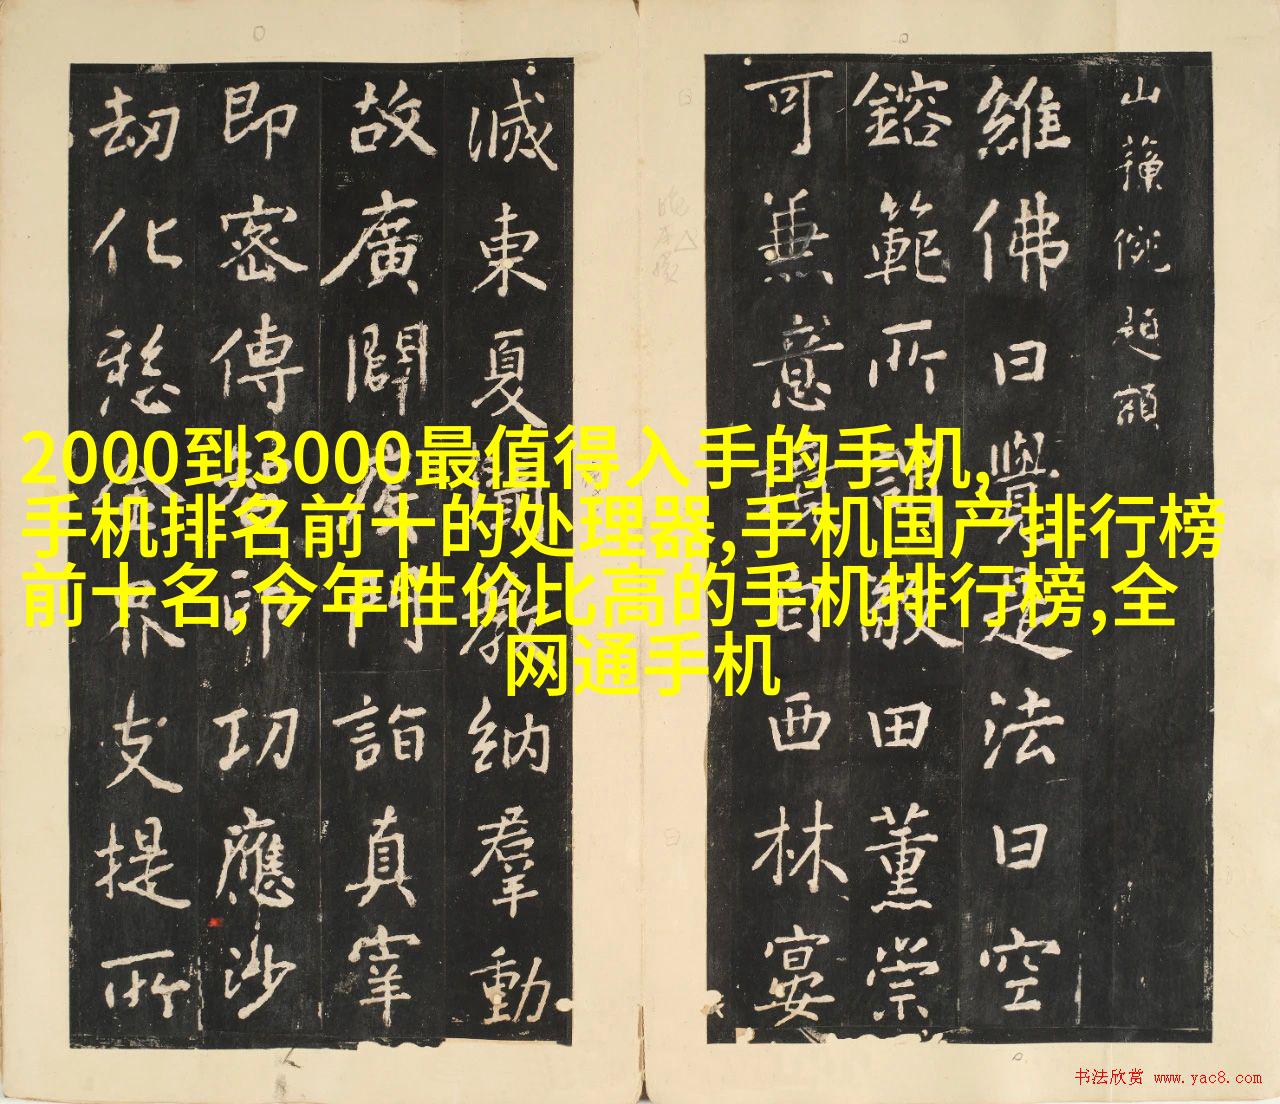 2000到3000最值得入手的手机,
手机排名前十的处理器,手机国产排行榜
前十名,今年性价比高的手机排行榜,全
网通手机
山
維佛曰覺是法曰空
鎔範所田薰崇
可兼意西林宴
滅東夏教納羣動
故廣闢門詣真
即密傳印功應沙
劫化支提所
书法欣赏 www.yac8.com